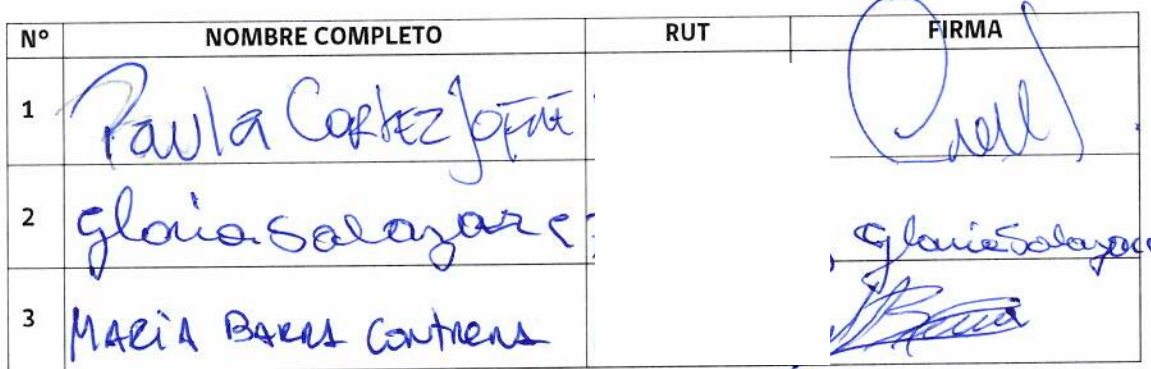 N° NOMBRE COMPLETO RUT FIRMA
1 Paula Cortez
2 Gloria Salazar Gloria Salazar
3 MARÍA BARRA Contreras